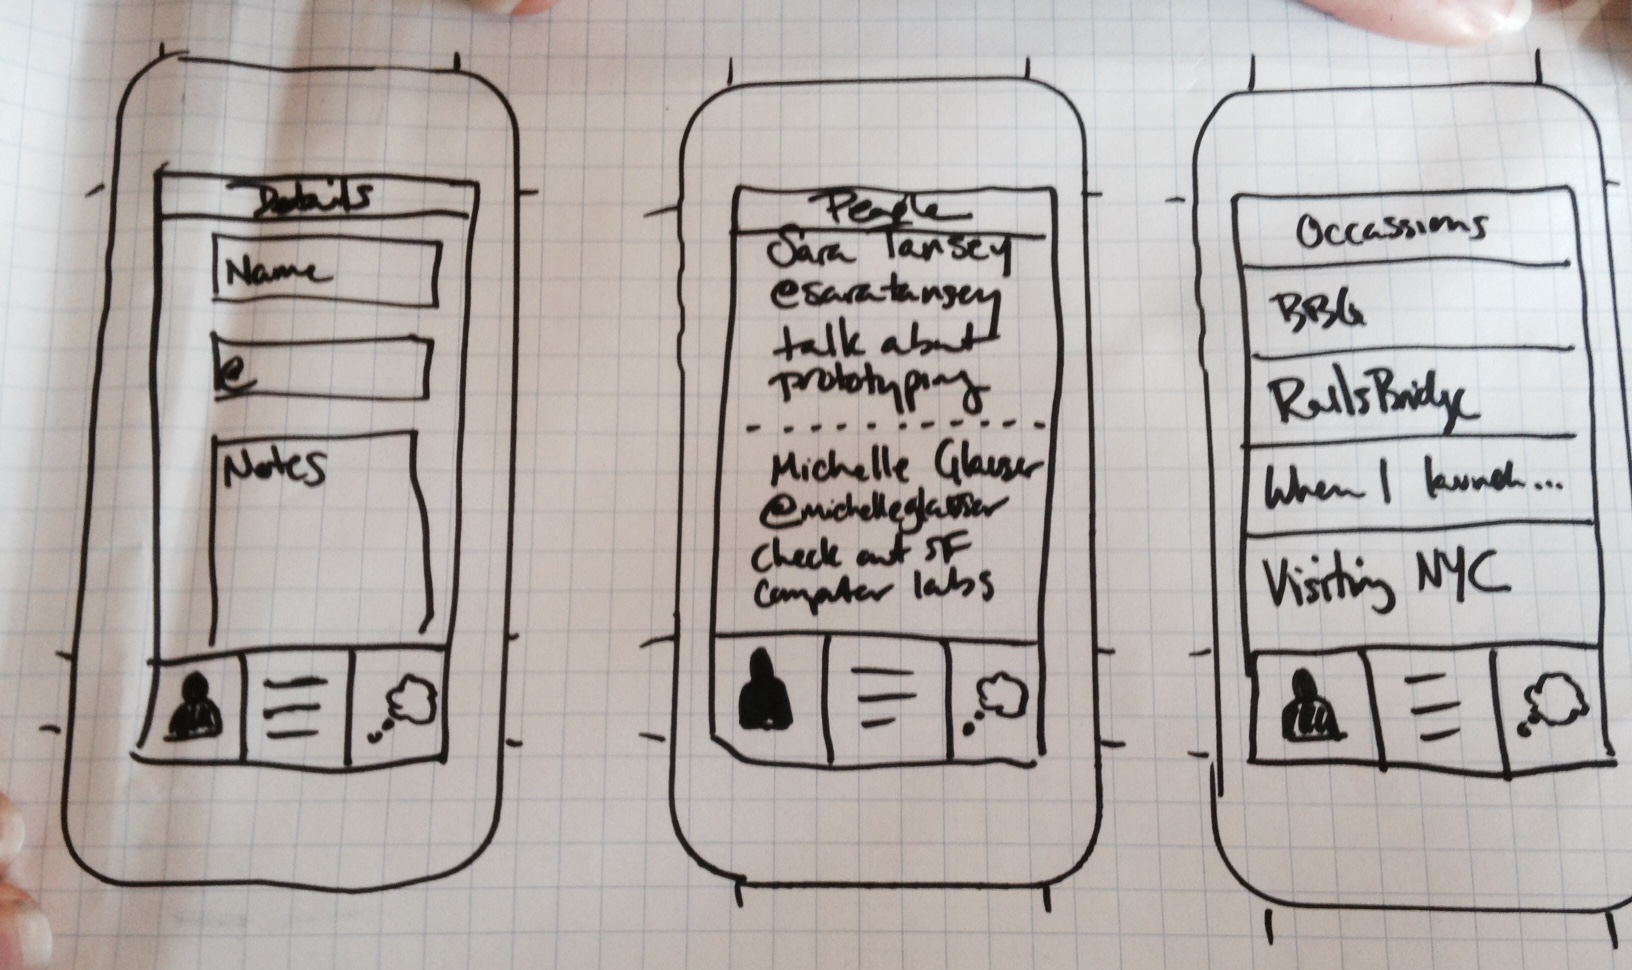 Details
Name
@
Notes
People
Sara Tansey
@saratansey
talk about
prototyping
Michelle Glauser
@michelleglauser
check out SF
computer labs
Occassions
BBG
RailsBridge
When I launch...
Visiting NYC